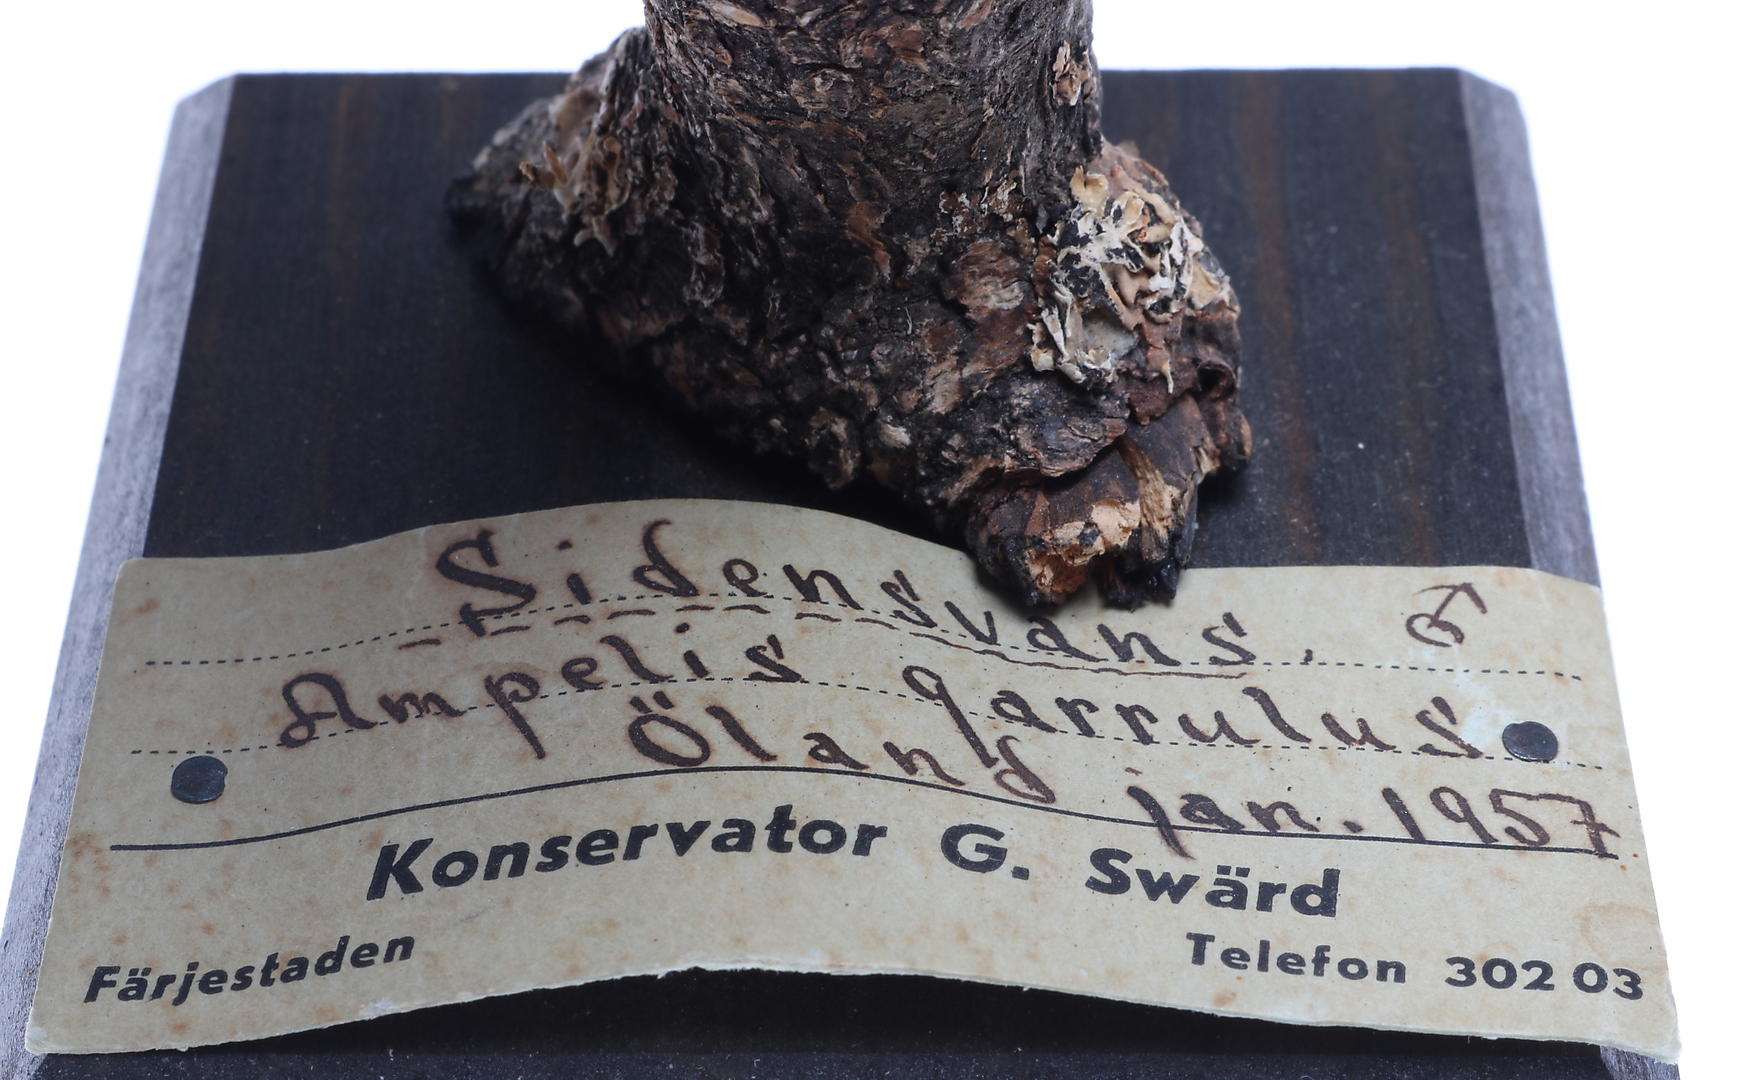 Sidensvans. ♂
Ampelis garrulus
Öland jan. 1957.
Konservator G. Swärd
Färjestaden Telefon 302 03